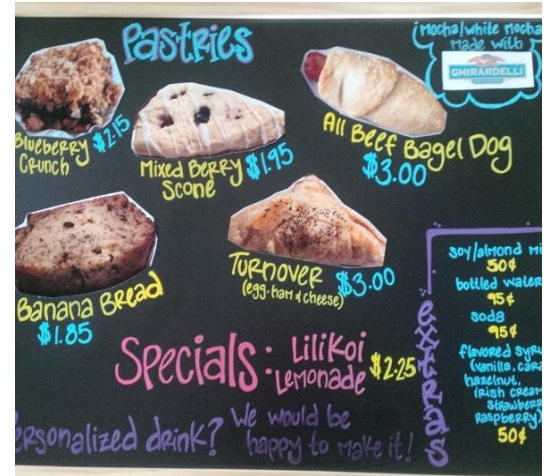 Pastries
(Mocha/white Mocha
Made with
GHIRARDELLI
Blueberry $2.15
Crunch
Mixed Berry $1.95
Scone
All Beef Bagel Dog
$3.00
Banana Bread
$1.85
Turnover $3.00
(egg·ham & cheese)
Specials: Lilikoi
Lemonade $2.25
personalized drink? We would be
happy to make it!
extras
soy/almond mi
50¢
bottled water
95¢
soda
95¢
flavored syru
(vanilla, cara
hazelnut,
irish cream
strawberr
raspberry)
50¢